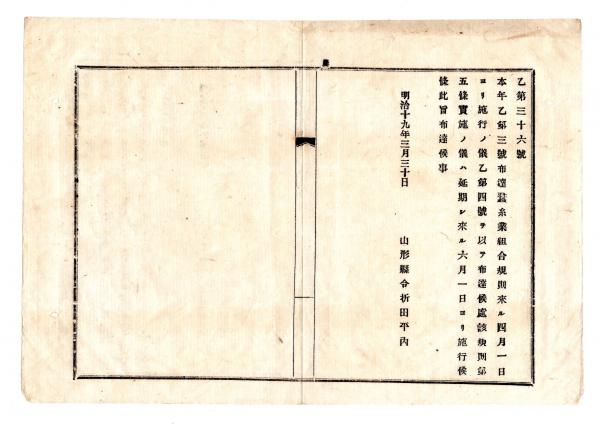 乙第三十六號
本年乙第三號布達蠶糸業組合規則來ル四月一日
ヨリ施行ノ儀乙第四號ヲ以テ布達候處該規則第
五條實施ノ儀ハ延期シ來ル六月一日ヨリ施行候
條此旨布達候事
明治十九年三月三十日
山形縣令折田平内